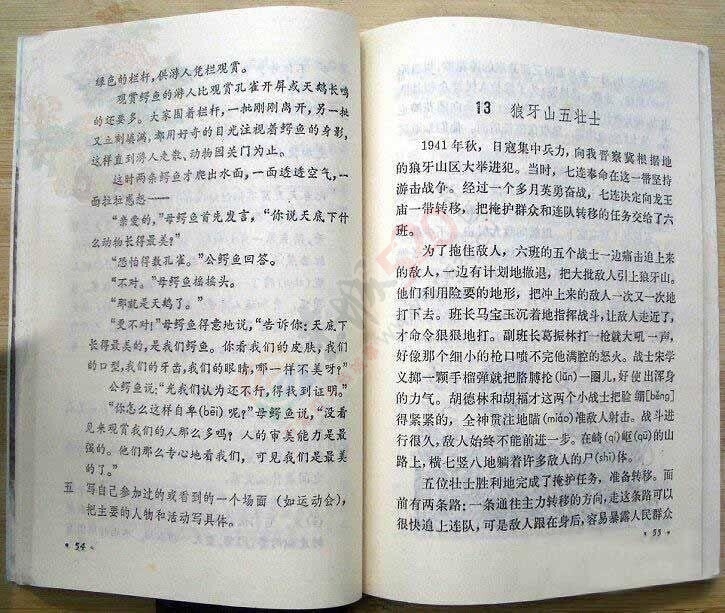 绿色的栏杆，供游人凭栏观赏。
观赏鳄鱼的游人比观赏孔雀开屏或天鹅长鸣
的还要多。大家围着栏杆，一批刚刚离开，另一批
又立刻填满，都用好奇的目光注视着鳄鱼的身影，
这样直到游人走散、动物园关门为止。
这时两条鳄鱼才爬出水面，一面透透空气，一
面拉拉
“亲爱的，”母鳄鱼首先发言，“你说天底下什
么动物长得最美？”
“恐怕得数孔雀。”公鳄鱼回答。
“不对。”母鳄鱼摇摇头。
“那就是天鹅了。”
“更不对！”母鳄鱼得意地说，“告诉你：天底下
长得最美的，是我们鳄鱼。你看我们的皮肤，我们
的口型，我们的牙齿，我们的眼睛，哪一样不美呀？”
公鳄鱼说：“光我们认为还不行，得找到证明。”
“你怎么这样自卑(bēi)呢？”母鳄鱼说，“没看
见来观赏我们的人那么多吗？人的审美能力是最
强的。他们那么专心地看我们，可见我们是最美
的了。”
五 写自己参加过的或看到的一个场面（如运动会），
把主要的人物和活动写具体。
·54·
13 狼牙山五壮士
1941年秋，日寇集中兵力，向我晋察冀根据地
的狼牙山区大举进犯。当时，七连奉命在这一带坚持
游击战争。经过一个多月英勇奋战，七连决定向龙王
庙一带转移，把掩护群众和连队转移的任务交给了六
班。
为了拖住敌人，六班的五个战士一边痛击追上来
的敌人，一边有计划地撤退，把大批敌人引上狼牙山。
他们利用险要的地形，把冲上来的敌人一次又一次地
打下去。班长马宝玉沉着地指挥战斗，让敌人走近了，
才命令狠狠地打。副班长葛振林打一枪就大吼一声，
好像那个细小的枪口喷不完他满腔的怒火。战士宋学
义掷一颗手榴弹就把胳膊抡(lūn)一圈儿，好使出浑身
的力气。胡德林和胡福才这两个小战士把脸绷[běng]
得紧紧的，全神贯注地瞄(miáo)准敌人射击。战斗进
行很久，敌人始终不能前进一步。在崎(qí)岖(qū)的山
路上，横七竖八地躺着许多敌人的尸(shī)体。
五位壮士胜利地完成了掩护任务，准备转移。面
前有两条路：一条通往主力转移的方向，走这条路可以
很快追上连队，可是敌人跟在身后，容易暴露人民群众
·55·